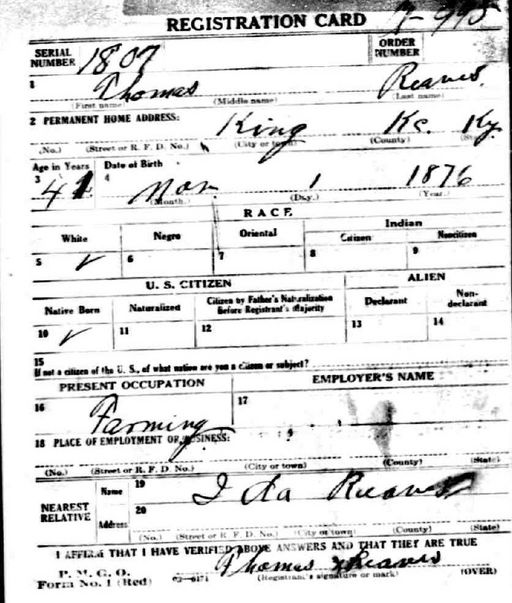 REGISTRATION CARD 7-995
SERIAL NUMBER 1807 ORDER NUMBER
1 Thomas Reaves.
(First name) (Middle name) (Last name)
2 PERMANENT HOME ADDRESS: King Ky.
(No.) (Street or R. F. D. No.) (City or town) (County) (State)
Age in Years Date of Birth
3 41 4 Nov 1 1876
(Month.) (Day.) (Year.)
RACE
White Negro Oriental Indian
Citizen Noncitizen
5 ✓ 6 7 8 9
U. S. CITIZEN ALIEN
Native Born Naturalized Citizen by Father's Naturalization Before Registrant's Majority Declarant Non-declarant
10 ✓ 11 12 13 14
15
If not a citizen of the U. S., of what nation are you a citizen or subject?
PRESENT OCCUPATION EMPLOYER'S NAME
16 Farming 17
18 PLACE OF EMPLOYMENT OR BUSINESS:
(No.) (Street or R. F. D. No.) (City or town) (County) (State)
NEAREST RELATIVE Name 19 Ida Reaves
Address 20
(No.) (Street or R. F. D. No.) (City or town) (County) (State)
I AFFIRM THAT I HAVE VERIFIED ABOVE ANSWERS AND THAT THEY ARE TRUE
P. M. G. O.
Form No. 1 (Red) 03-6171 Thomas Reaves
(Registrant's signature or mark) (OVER)